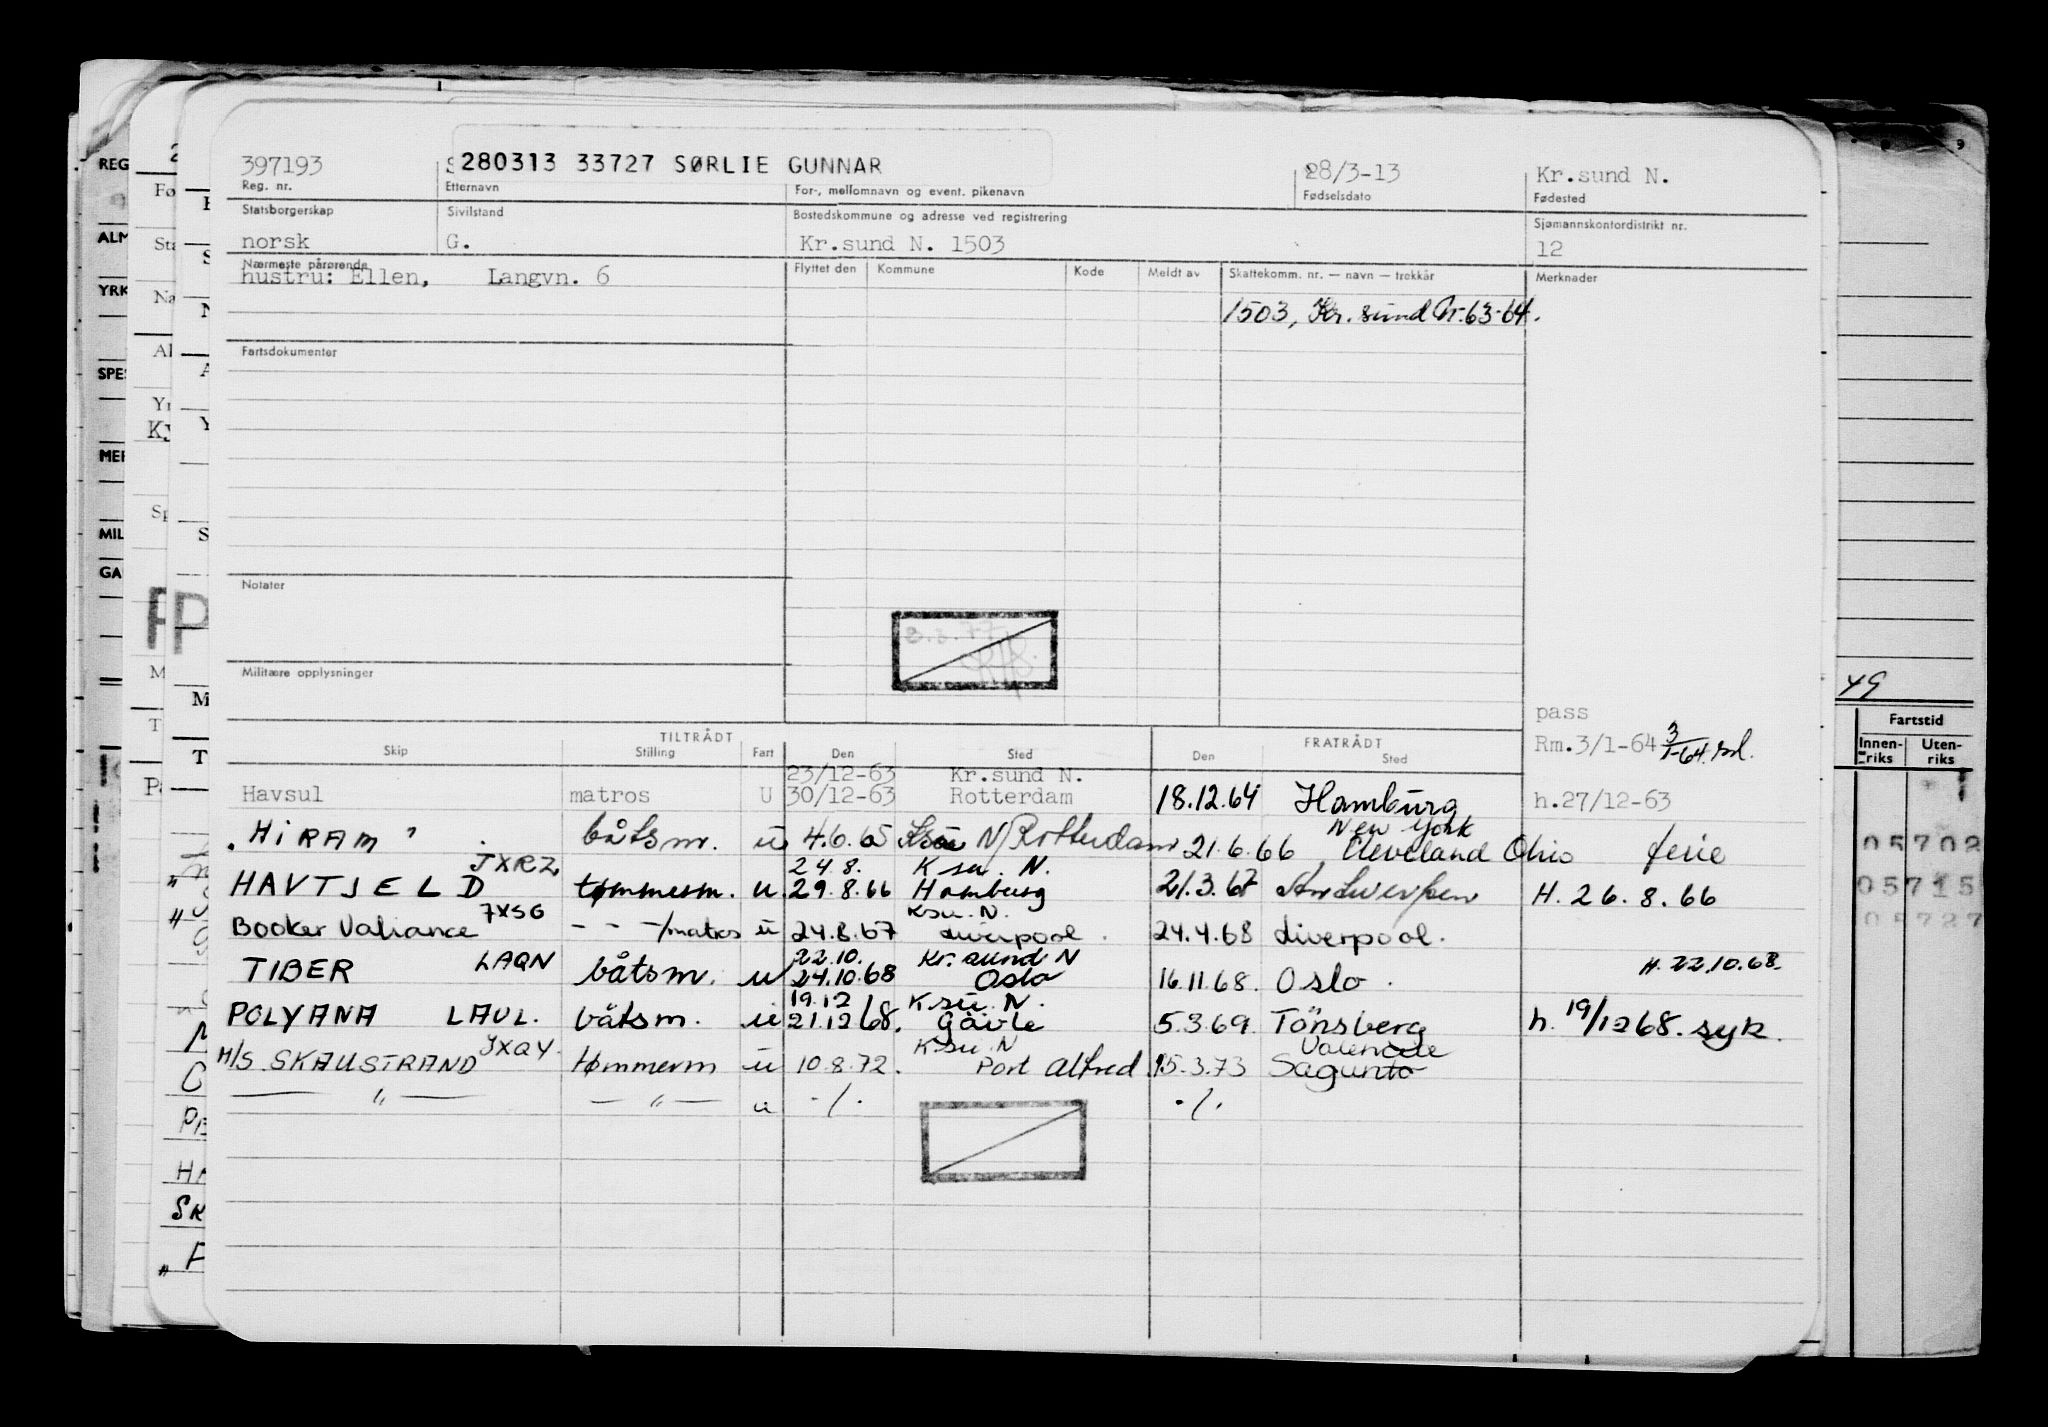 397193 280313 33727 SØRLIE GUNNAR 28/3-13 Kr.sund N.
Reg. nr. Etternavn For-, mellomnavn og event. pikenavn Fødselsdato Fødested
Statsborgerskap Sivilstand Bostedskommune og adresse ved registrering Sjømannskontordistrikt nr.
norsk G. Kr.sund N. 1503 12
Nærmeste pårørende Flyttet den Kommune Kode Meldt av Skattekomm. nr. — navn — trekkår Merknader
hustru: Ellen, Langvn. 6
1503, Kr. sund N. 63-64.
Fartsdokumenter
Notater
Militære opplysninger
pass
Rm.3/1-64 3/1-64
TILTRÅDT FRATRÅDT
Skip Stilling Fart Den Sted Den Sted
23/12-63 Kr.sund N.
Havsul matros U 30/12-63 Rotterdam 18.12.64 Hamburg h.27/12-63
New York
"HiRAM" båtsm. u 4.6.65 Ksu N/Rotterdam 21.6.66 Cleveland Ohio ferie
JXRZ 24.8. Ksu. N.
HAVTJELD tømmerm. u. 29.8.66 Hamburg 21.3.67 Antwerpen H. 26.8.66
JXSG Ksu. N.
Booker Valiance - - -/matros u 24.8.67 Liverpool. 24.4.68 Liverpool.
22.10. Kr. sund N
TIBER LAQN båtsm. u 24.10.68 Oslo 16.11.68. Oslo. H. 22.10.68.
19.12 Ksu. N.
POLYANA LAUL. båtsm. u 21.12.68. Gävle 5.3.69. Tönsberg h. 19/12 68. syk.
JXQY. Ksu. N
M/S SKAUSTRAND tømmerm u 10.8.72. Port Alfred 15.3.73 Sagunto
— " — — " — u ./. ./.
REG
ALM
YRK
SPES
MER
MIL
GA
49
Fartstid
Innenriks Utenriks
05702
05715
05727